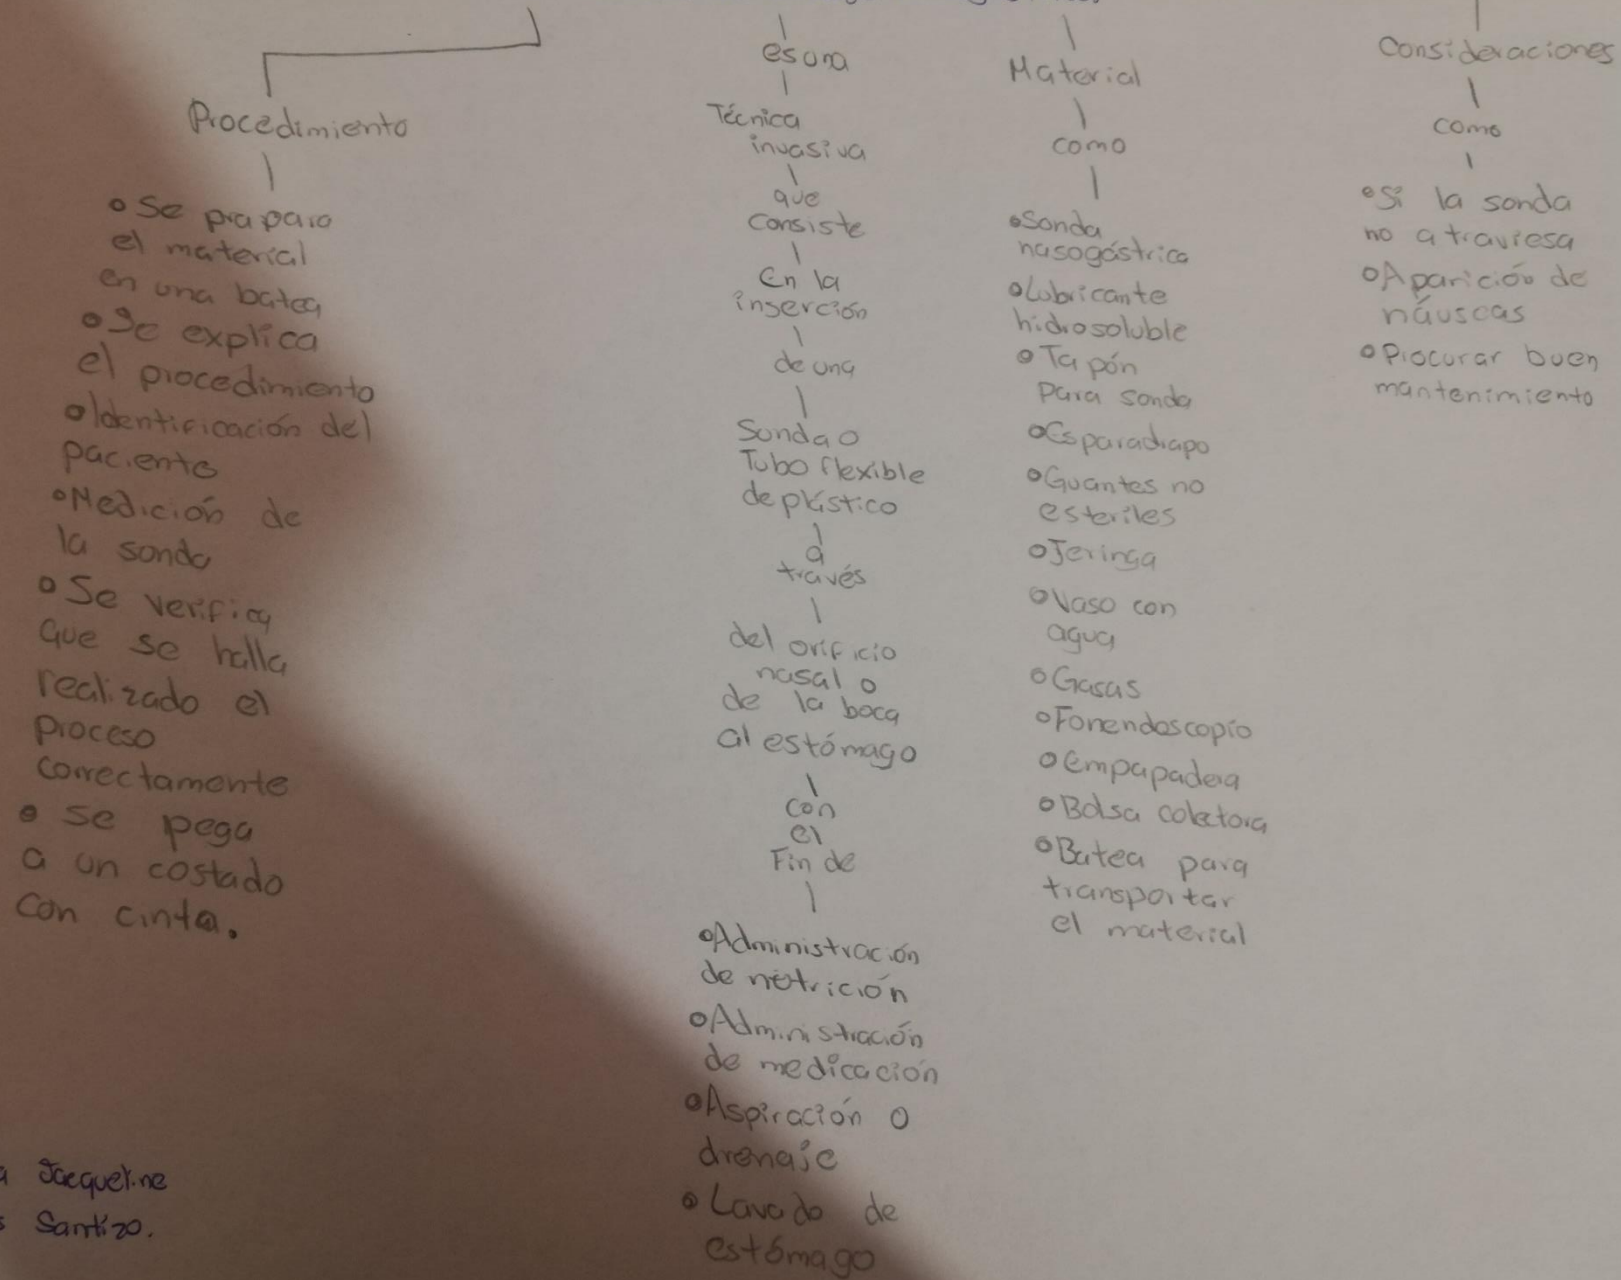 Procedimiento
o Se prapara
el material
en una batea
o Se explica
el procedimiento
o Identificación del
paciente
o Medición de
la sonda
o Se verifica
que se halla
realizado el
proceso
correctamente
o Se pega
a un costado
con cinta.
Jacqueline
Santizo.
es una
Técnica
invasiva
que
consiste
En la
inserción
de una
Sonda o
Tubo flexible
de plástico
a
través
del orificio
nasal o
de la boca
al estómago
con
el
Fin de
o Administración
de nutrición
o Administración
de medicación
o Aspiración o
drenaje
o Lavado de
estómago
Material
como
o Sonda
nasogástrica
o Lubricante
hidrosoluble
o Tapón
para sonda
o Esparadrapo
o Guantes no
esteriles
o Jeringa
o Vaso con
agua
o Gasas
o Fonendoscopio
o Empapadera
o Bolsa colectora
o Batea para
transportar
el material
Consideraciones
como
o Si la sonda
no atraviesa
o Aparición de
náuseas
o Procurar buen
mantenimiento